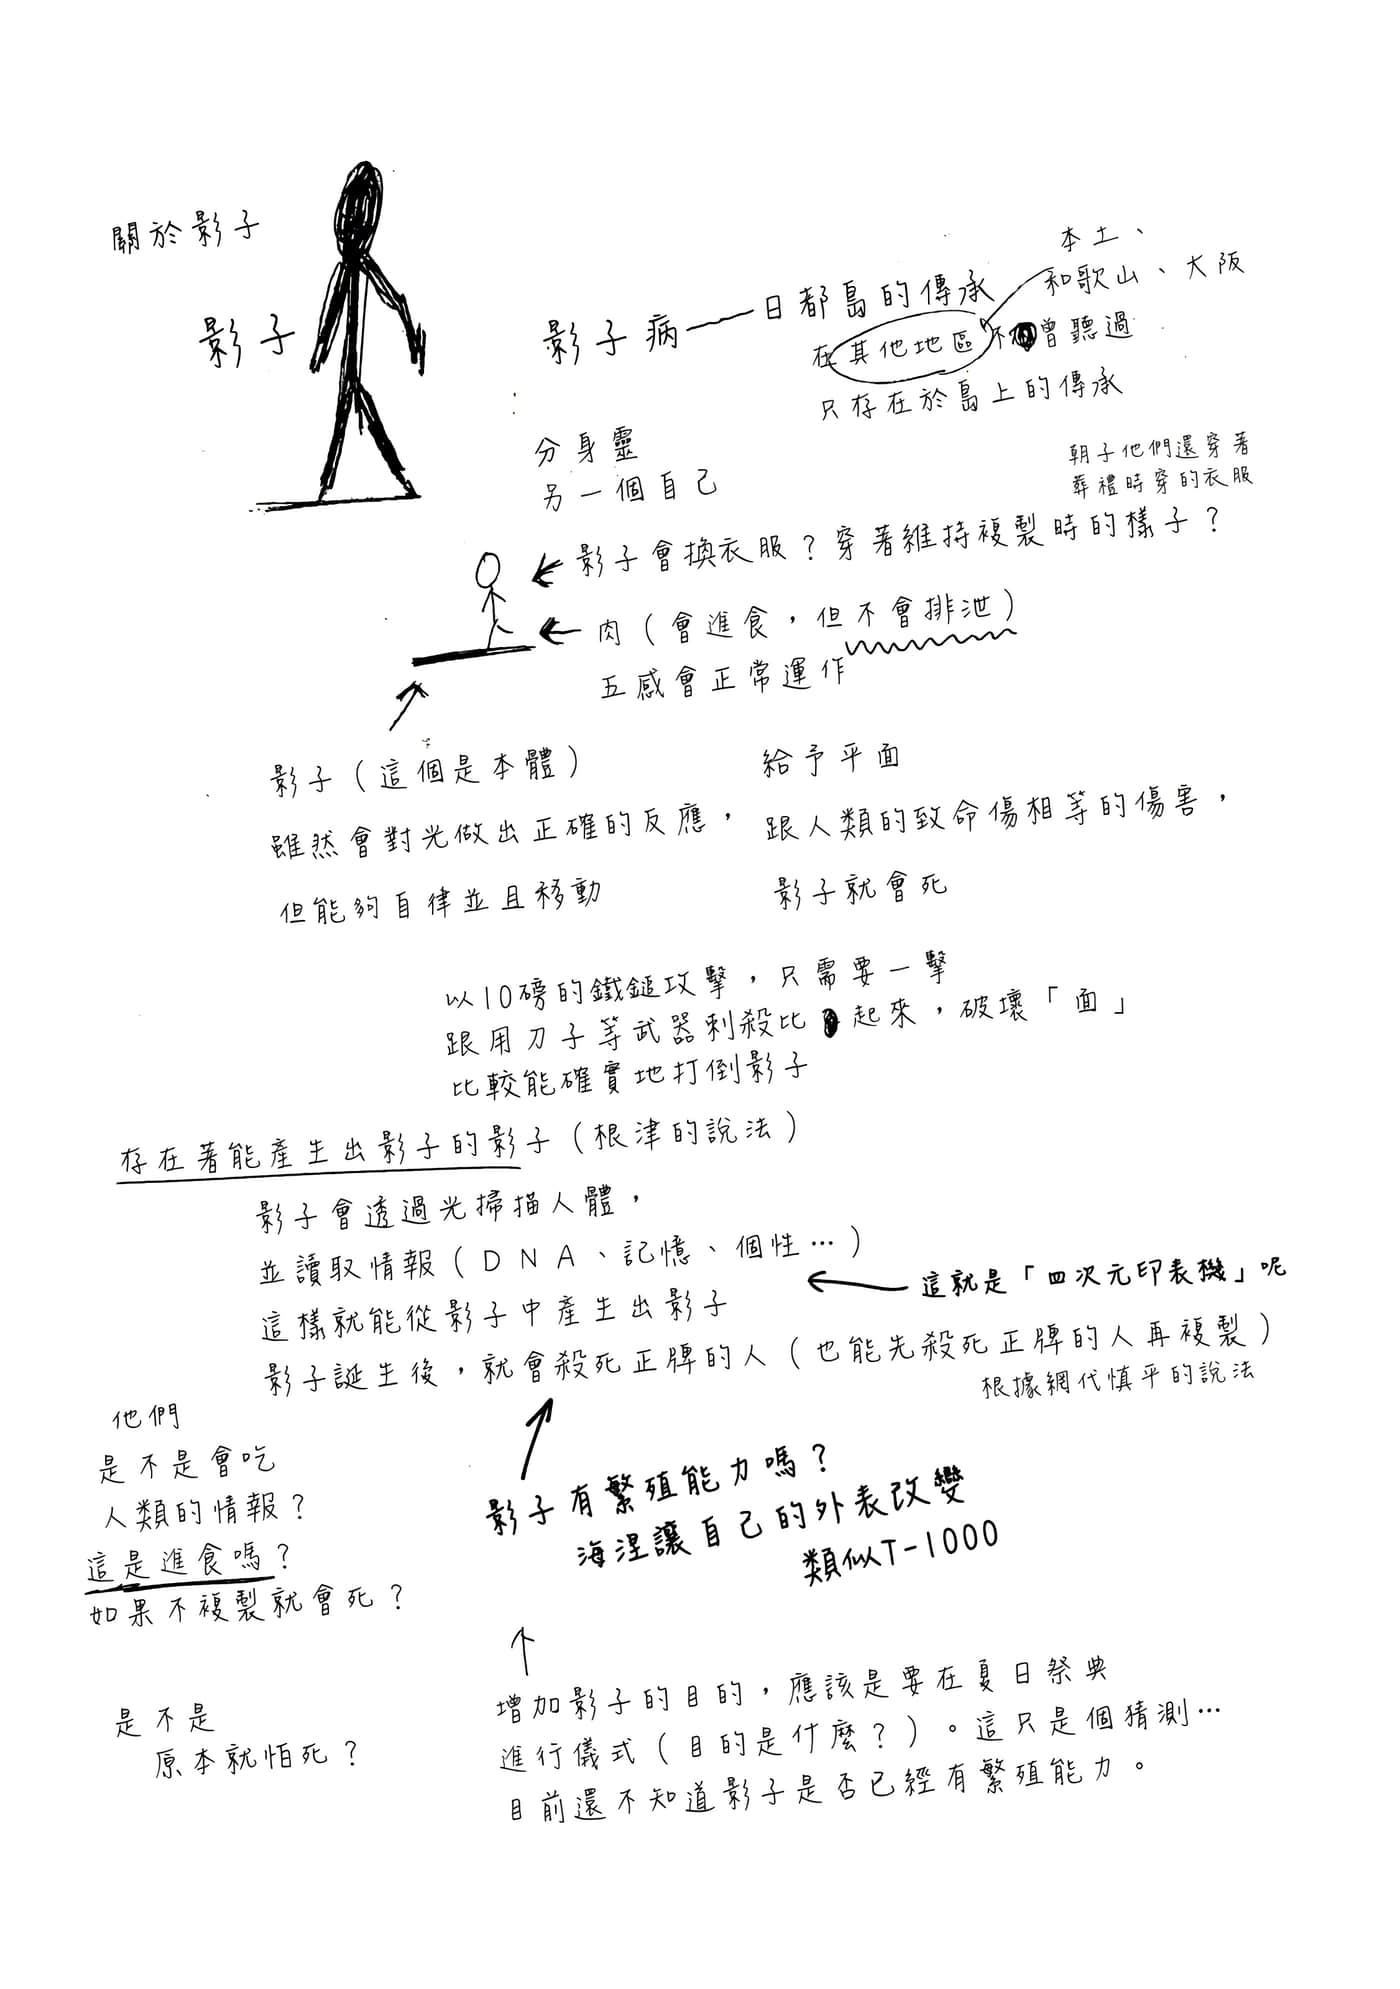 關於影子
影子
影子病——日都島的傳承
本土、
和歌山、大阪
在其他地區不曾聽過
只存在於島上的傳承
分身靈
另一個自己
朝子他們還穿著
葬禮時穿的衣服
影子會換衣服？穿著維持複製時的樣子？
肉（會進食，但不會排泄）
五感會正常運作
影子（這個是本體）
雖然會對光做出正確的反應，
但能夠自律並且移動
給予平面
跟人類的致命傷相等的傷害，
影子就會死
以10磅的鐵鎚攻擊，只需要一擊
跟用刀子等武器刺殺比起來，破壞「面」
比較能確實地打倒影子
存在著能產生出影子的影子（根津的說法）
影子會透過光掃描人體，
並讀取情報（DNA、記憶、個性…）
這樣就能從影子中產生出影子
這就是「四次元印表機」呢
影子誕生後，就會殺死正牌的人（也能先殺死正牌的人再複製）
根據網代慎平的說法
他們
是不是會吃
人類的情報？
這是進食嗎？
如果不複製就會死？
是不是
原本就怕死？
影子有繁殖能力嗎？
海涅讓自己的外表改變
類似T-1000
增加影子的目的，應該是要在夏日祭典
進行儀式（目的是什麼？）。這只是個猜測…
目前還不知道影子是否已經有繁殖能力。